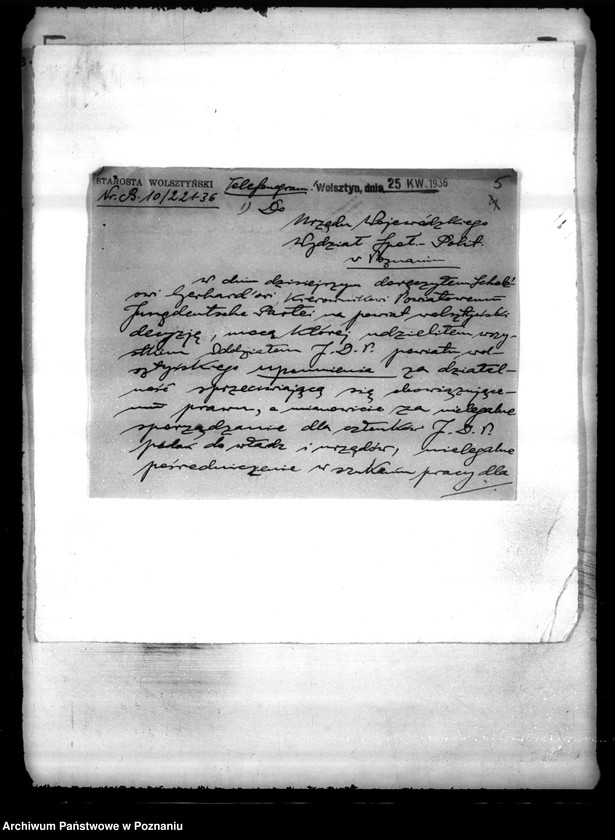 STAROSTA WOLSZTYŃSKI
Telefonogram! Wolsztyn, dnia 25 KW. 1936
5
Nr. B. 10/22/36
1) Do
Urzędu Wojewódzkiego
Wydział Społ.-Polit.
w Poznaniu
w dniu dzisiejszym doręczyłem
owi Gerhard'owi Kierownikowi Powiatowemu
Jungdeutsche Partei na powiat wolsztyński
decyzję, mocą której udzieliłem wszy-
stkim Oddziałom J.D.P. powiatu wol-
sztyńskiego upomnienia za działal-
ność sprzeciwiającą się obowiązujące-
mu prawu, a mianowicie za nielegalne
sporządzanie dla członków J.D.P.
podań do władz i urzędów, nielegalne
pośredniczenie w szukaniu pracy dla
Archiwum Państwowe w Poznaniu